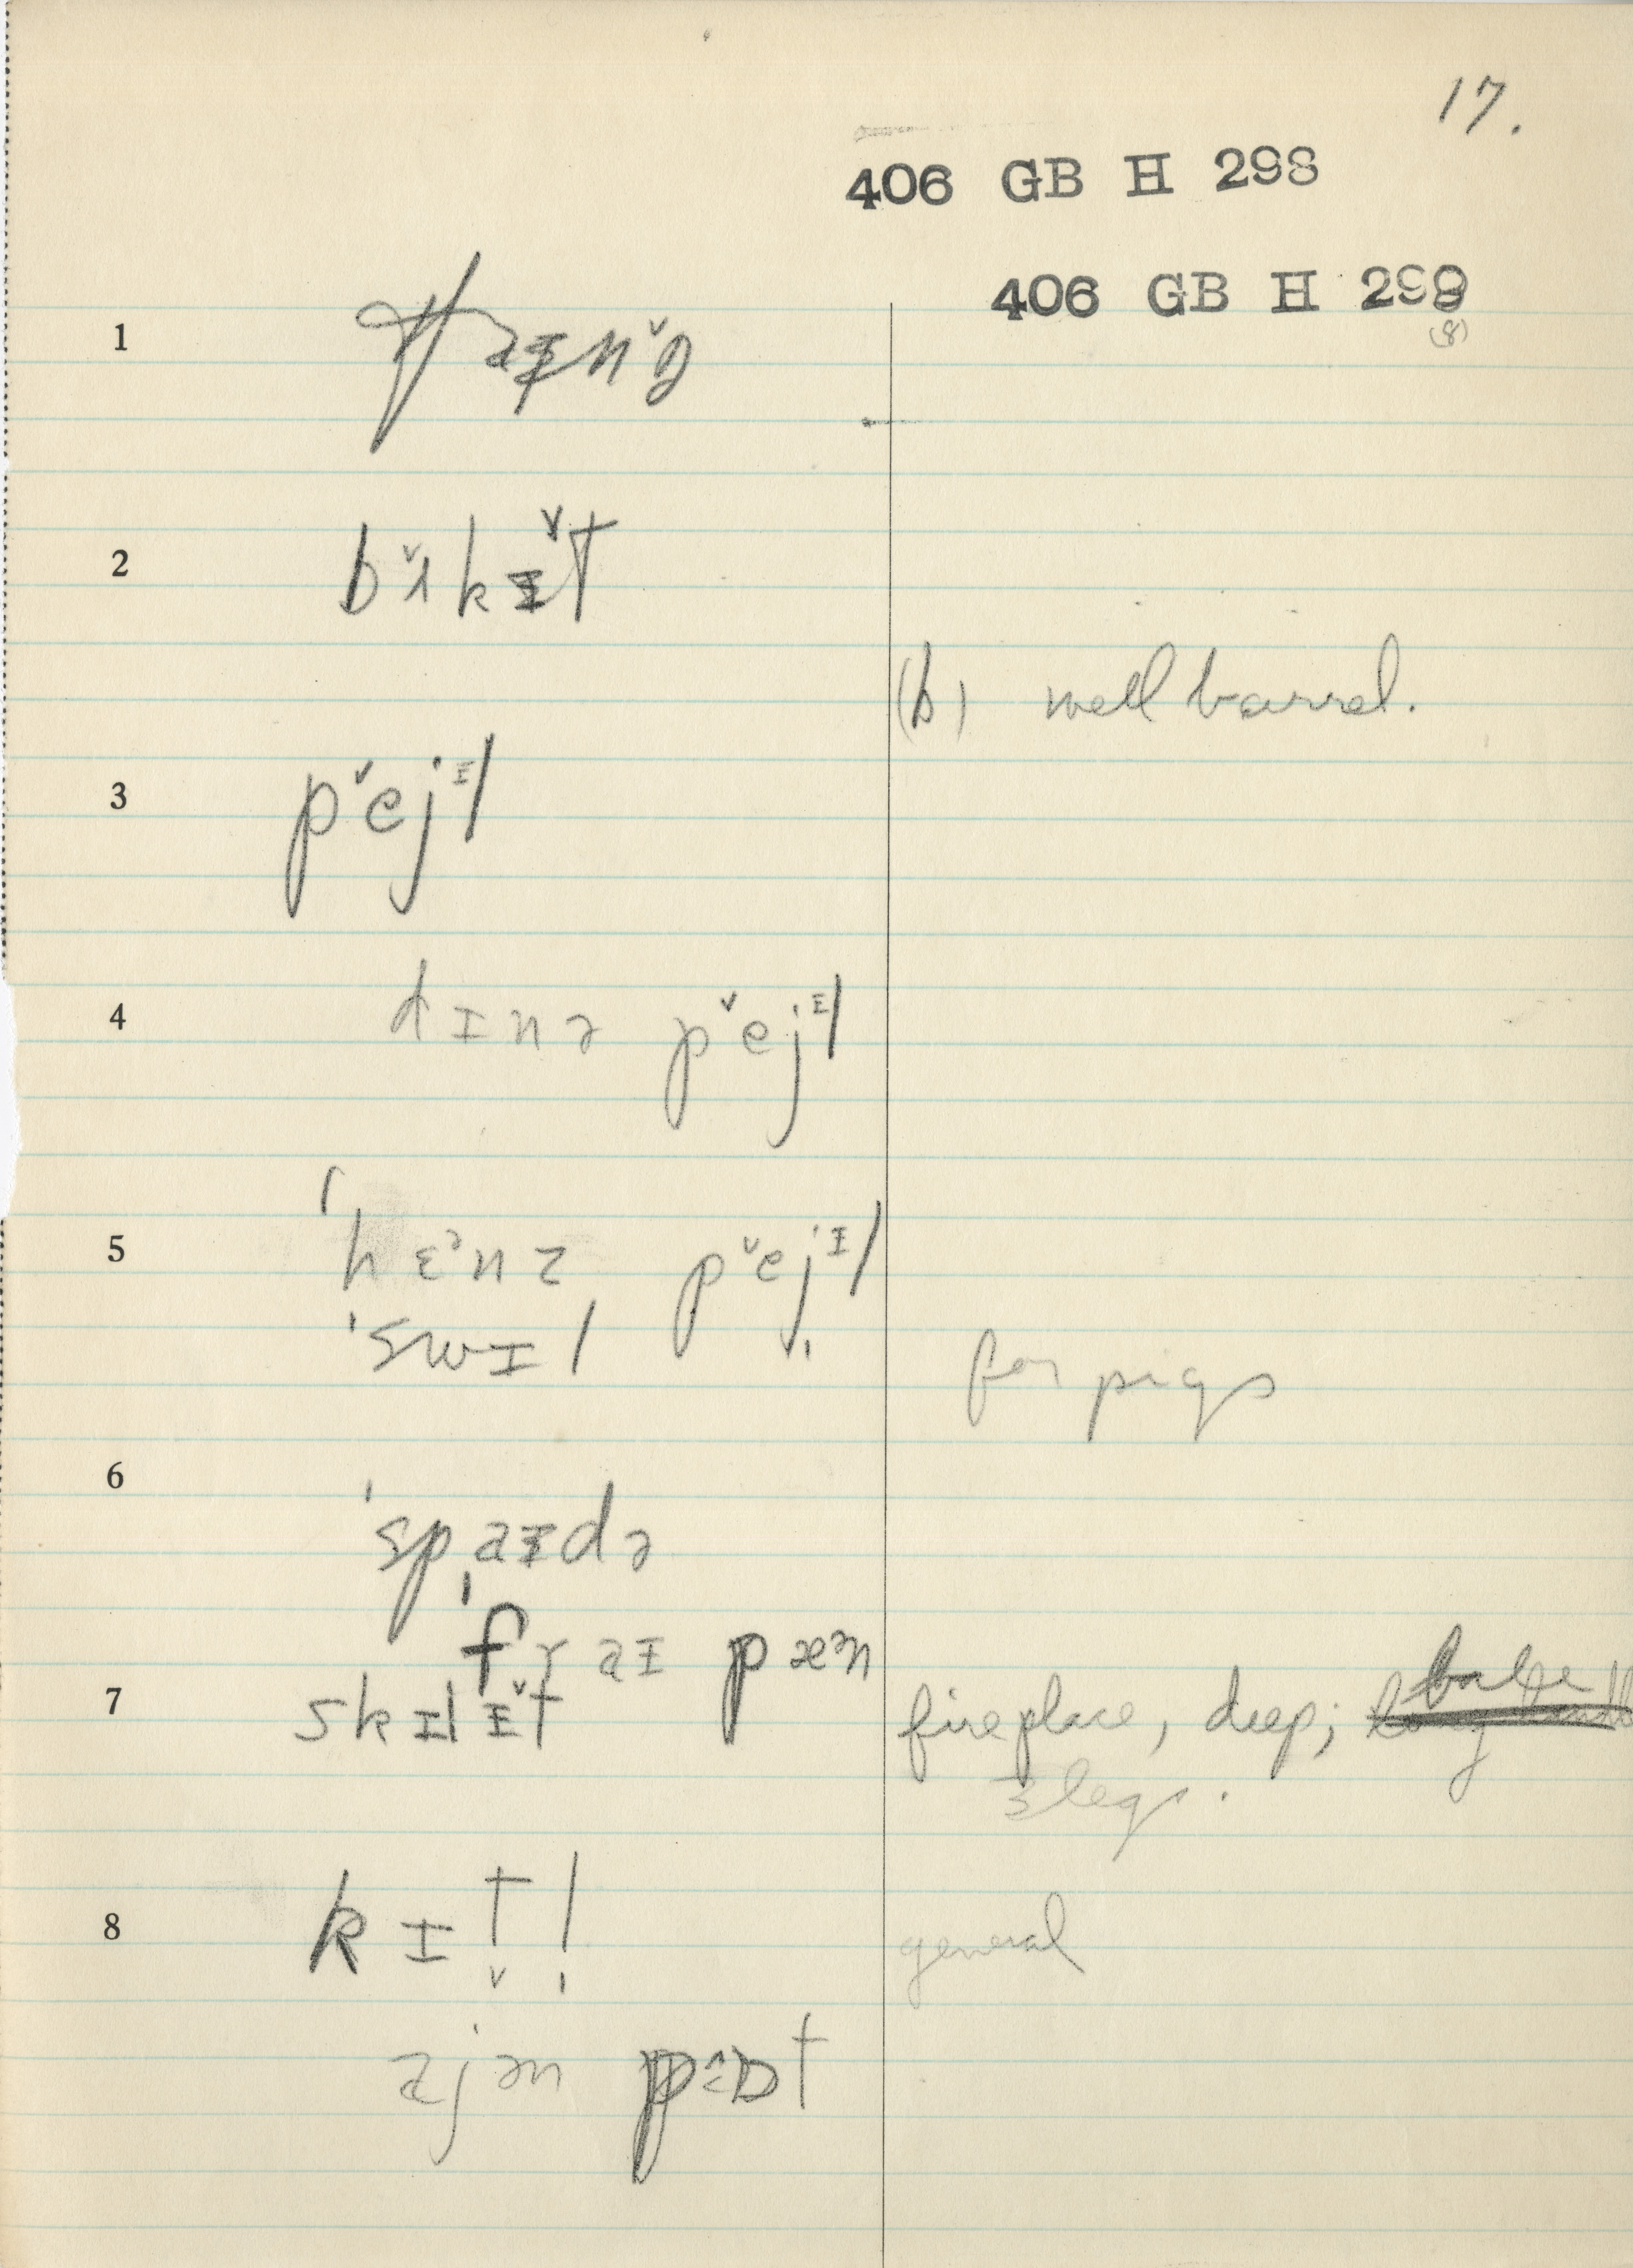 17.
406 GB H 298
406 GB H 299
(8)
1
2 bʌ̌kɪ̌t
(b) well barrel.
3 pějɪl
4 dɪnə pějɪl
5 hɛənz pějɪl
'swɪl
for pigs
6 'spaɪdə
'fraɪ pæən
7 skɪlɪ̌t fireplace, deep; bale
3 legs.
8 kɪt̬l̩ general
ajən pɒt